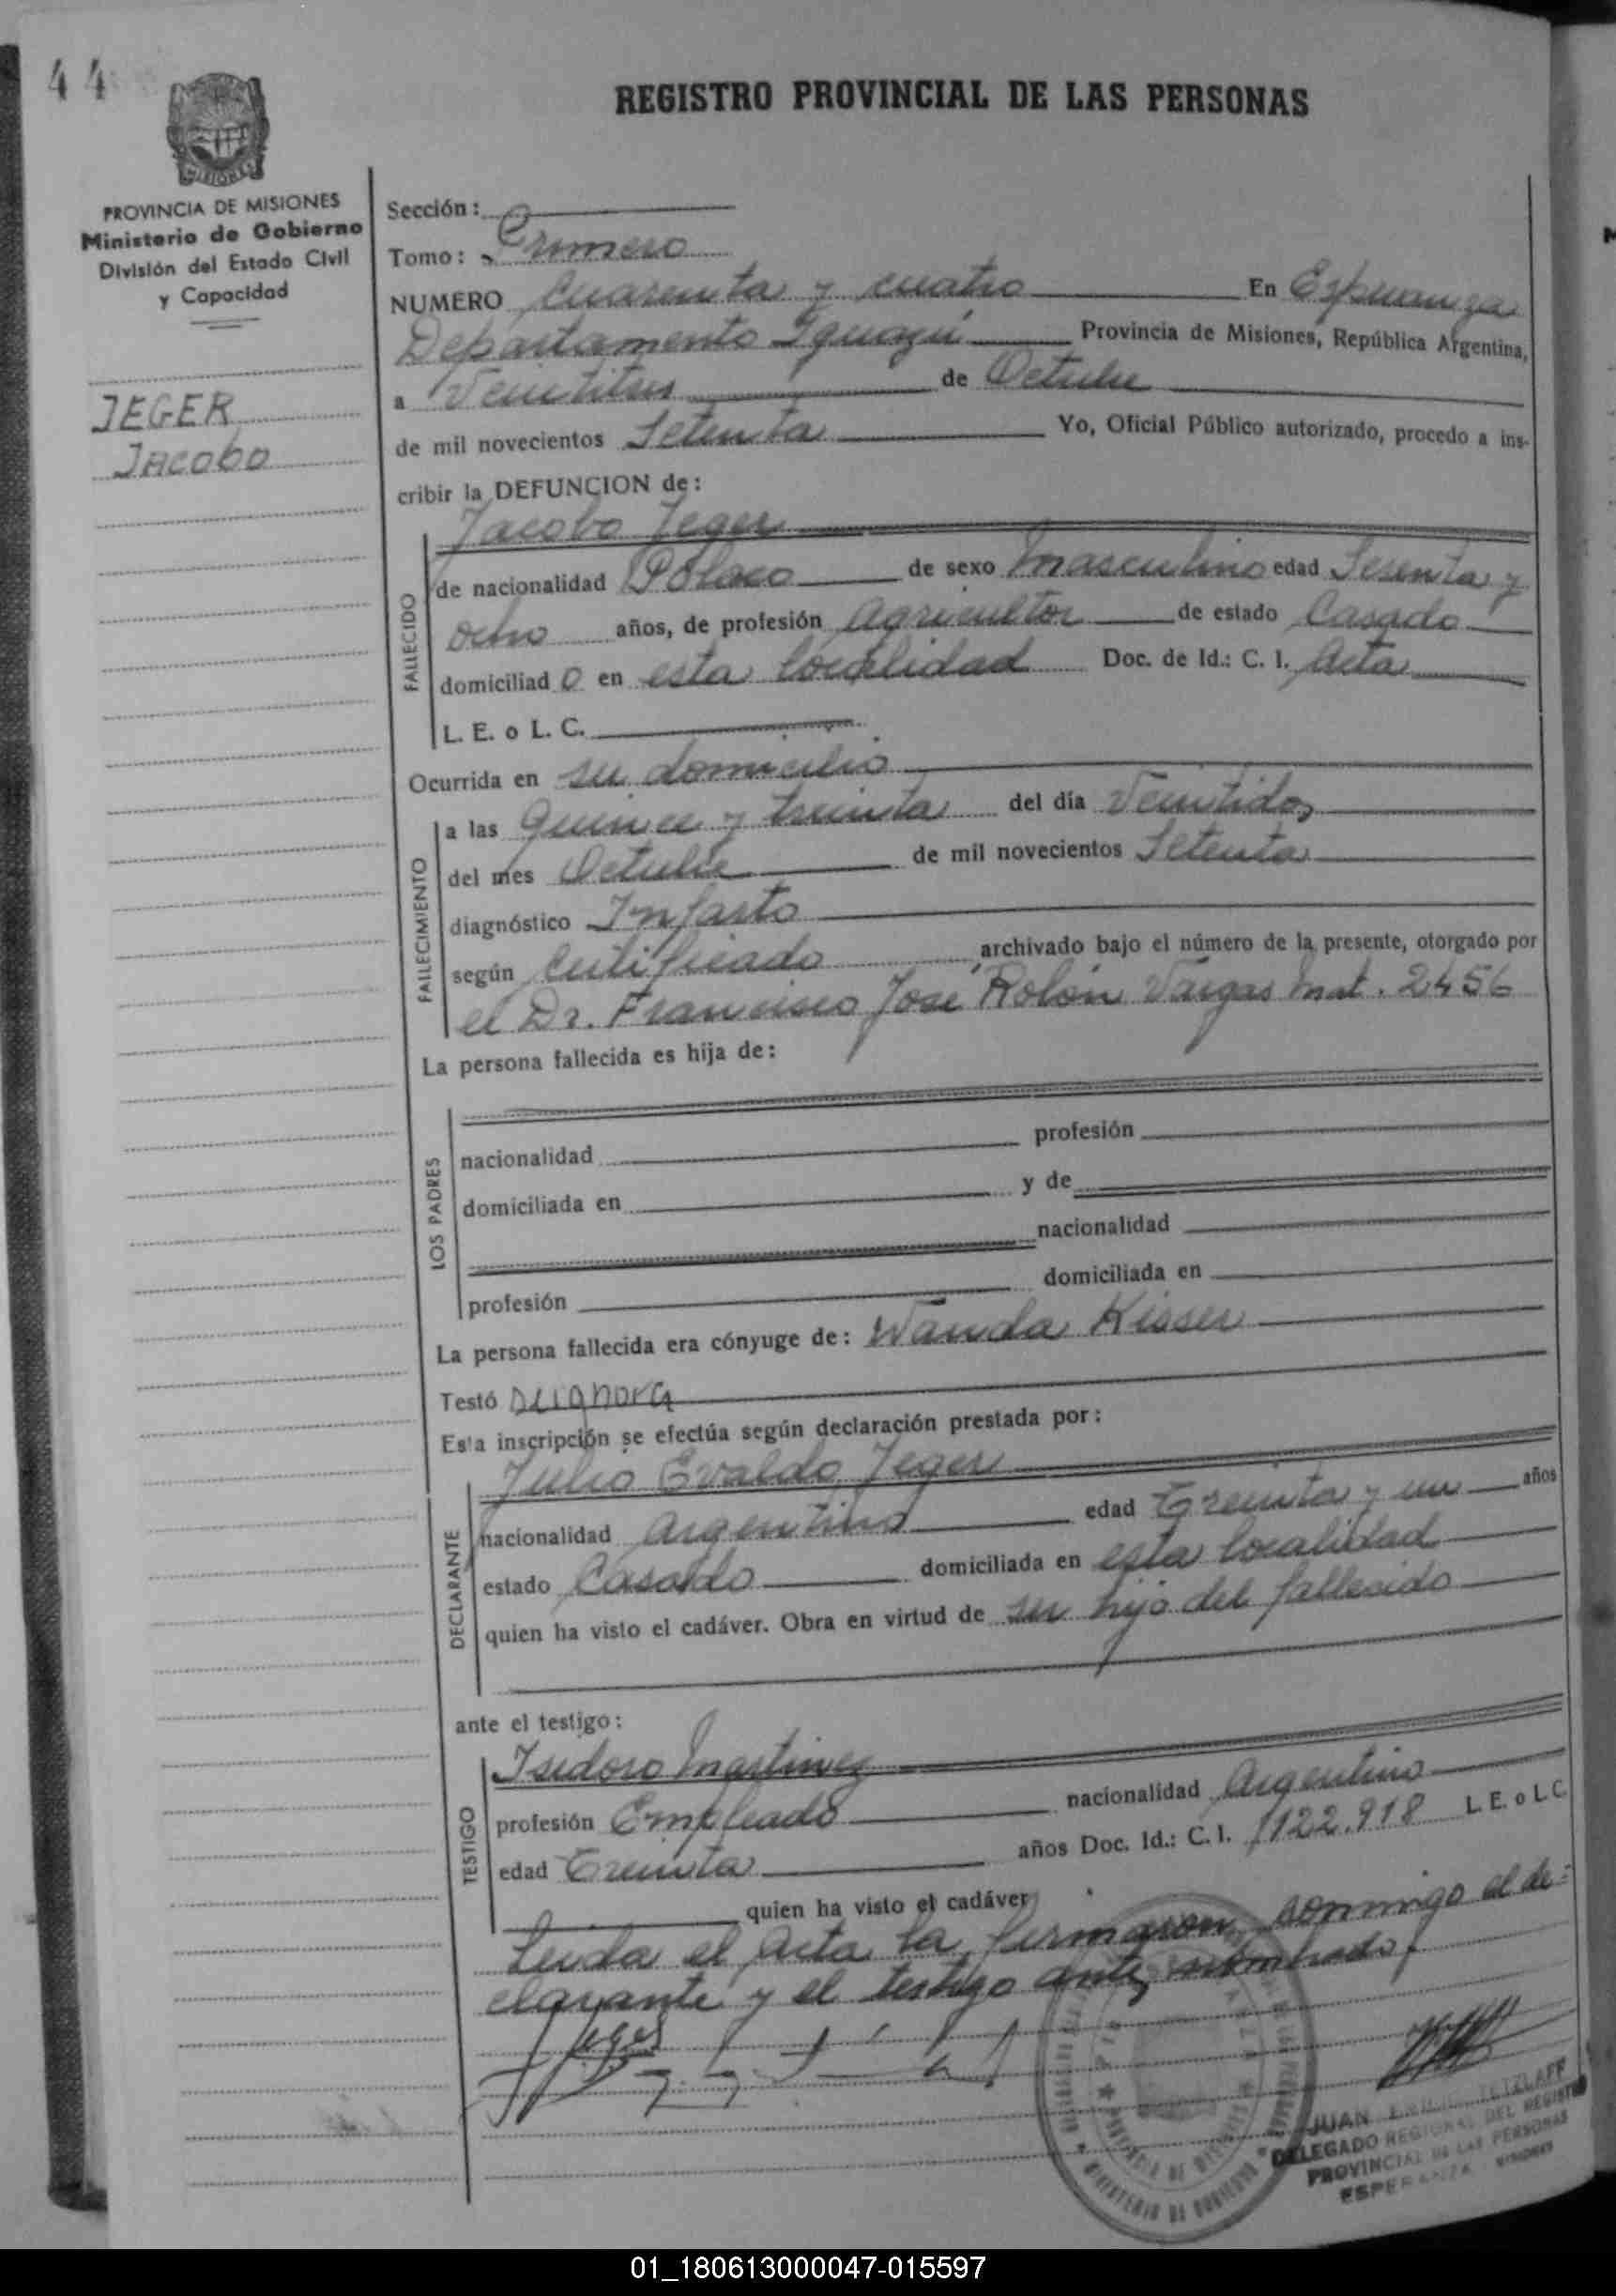 44
REGISTRO PROVINCIAL DE LAS PERSONAS
MISIONES
PROVINCIA DE MISIONES
Ministerio de Gobierno
División del Estado Civil
y Capacidad
JEGER
Jacobo
Sección:
Tomo: Primero
NUMERO Cuarenta y cuatro En Esperanza
Departamento Iguazú Provincia de Misiones, República Argentina,
a Veintitres de Octubre
de mil novecientos Setenta Yo, Oficial Público autorizado, procedo a ins-
cribir la DEFUNCION de:
Jacobo Jeger
FALLECIDO
de nacionalidad Polaco de sexo Masculino edad Sesenta y
ocho años, de profesión Agricultor de estado Casado
domiciliado en esta localidad Doc. de Id.: C. I. Acta
L. E. o L. C.
Ocurrida en su domicilio
FALLECIMIENTO
a las Quince y treinta del día Veintidos
del mes Octubre de mil novecientos Setenta
diagnóstico Infarto
según Certificado archivado bajo el número de la presente, otorgado por
el Dr. Francisco José Rolón Vargas Mat. 2456
La persona fallecida es hija de:
LOS PADRES
nacionalidad profesión
domiciliada en y de
nacionalidad
profesión domiciliada en
La persona fallecida era cónyuge de: Wanda Kisser
Testó se ignora
Esta inscripción se efectúa según declaración prestada por:
Julio Evaldo Jeger
DECLARANTE
nacionalidad Argentino edad Treinta y un años
estado Casado domiciliada en esta localidad
quien ha visto el cadáver. Obra en virtud de ser hijo del fallecido
ante el testigo:
Isidoro Martinez
TESTIGO
profesión Empleado nacionalidad Argentino
edad Treinta años Doc. Id.: C. I. 122.918 L. E. o L. C.
quien ha visto el cadáver
Leida el Acta la firmaron conmigo el de=
clarante y el testigo antes nombrado.
Jeger
JUAN TETZLAFF
DELEGADO REGIONAL DEL REGISTRO
PROVINCIAL DE LAS PERSONAS
ESPERANZA MISIONES
MINISTERIO DE GOBIERNO
PROVINCIA DE MISIONES
01_180613000047-015597